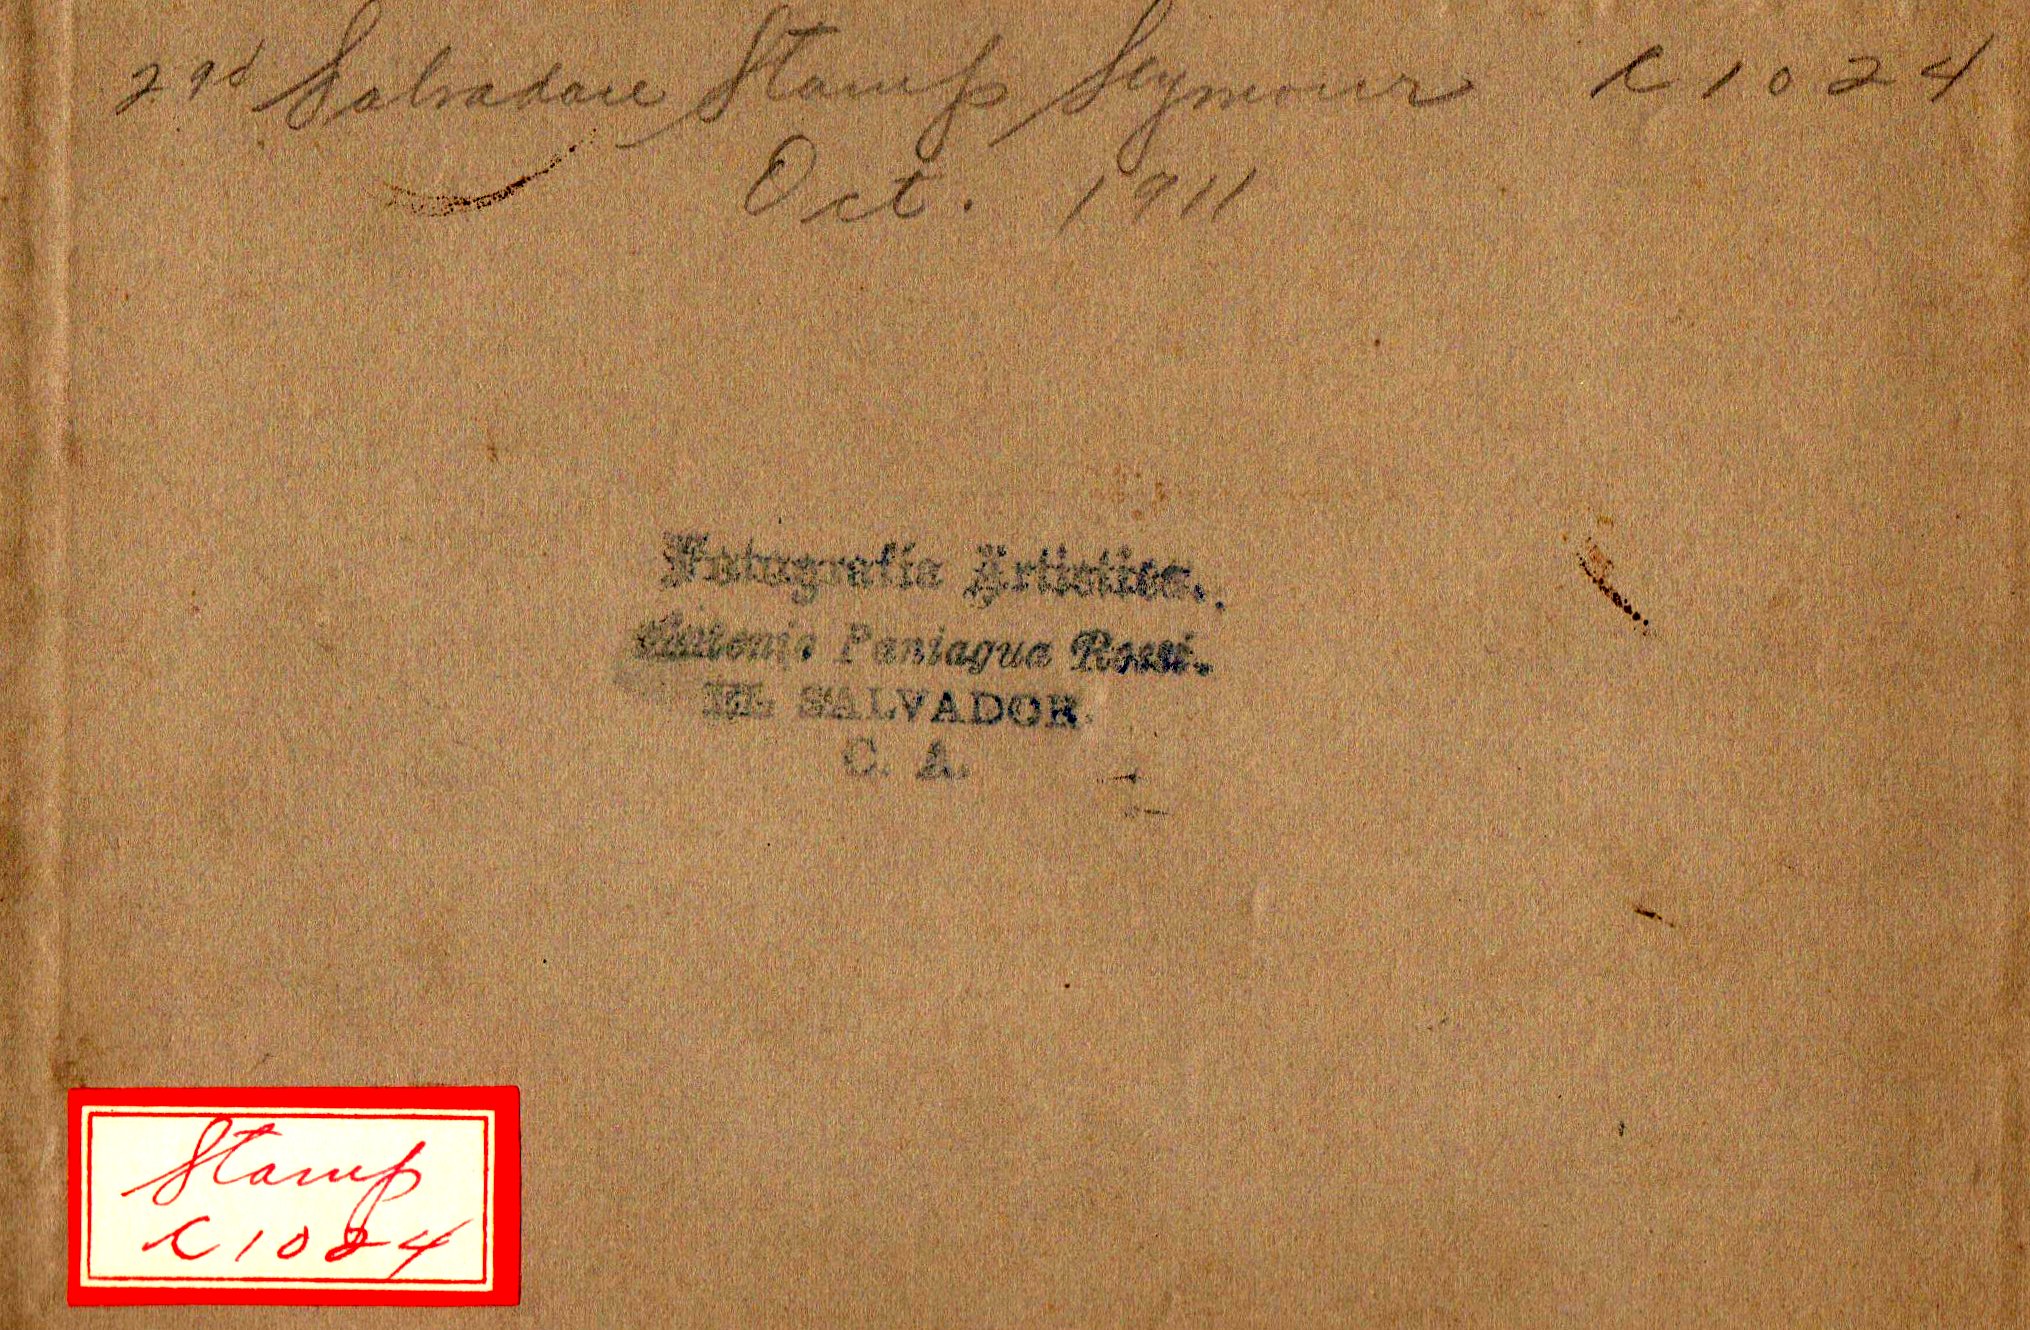 2nd Salvadore Stamp Seymour C1024
Oct. 1911
Fotografía Artística.
Antonio Paniagua Rossi.
EL SALVADOR.
C. A.
Stamp
C1024